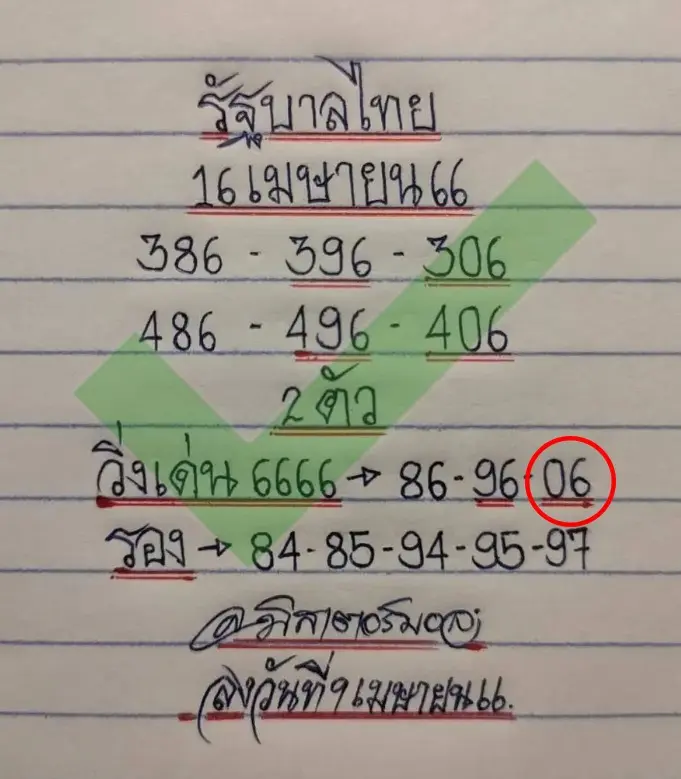 รัฐบาลไทย
16 เมษายน 66
386 - 396 - 306
486 - 496 - 406
2 ตัว
วิ่งเด่น 6666 → 86 - 96 - 06
รอง → 84 - 85 - 94 - 95 - 97
วันที่ 9 เมษายน 66.